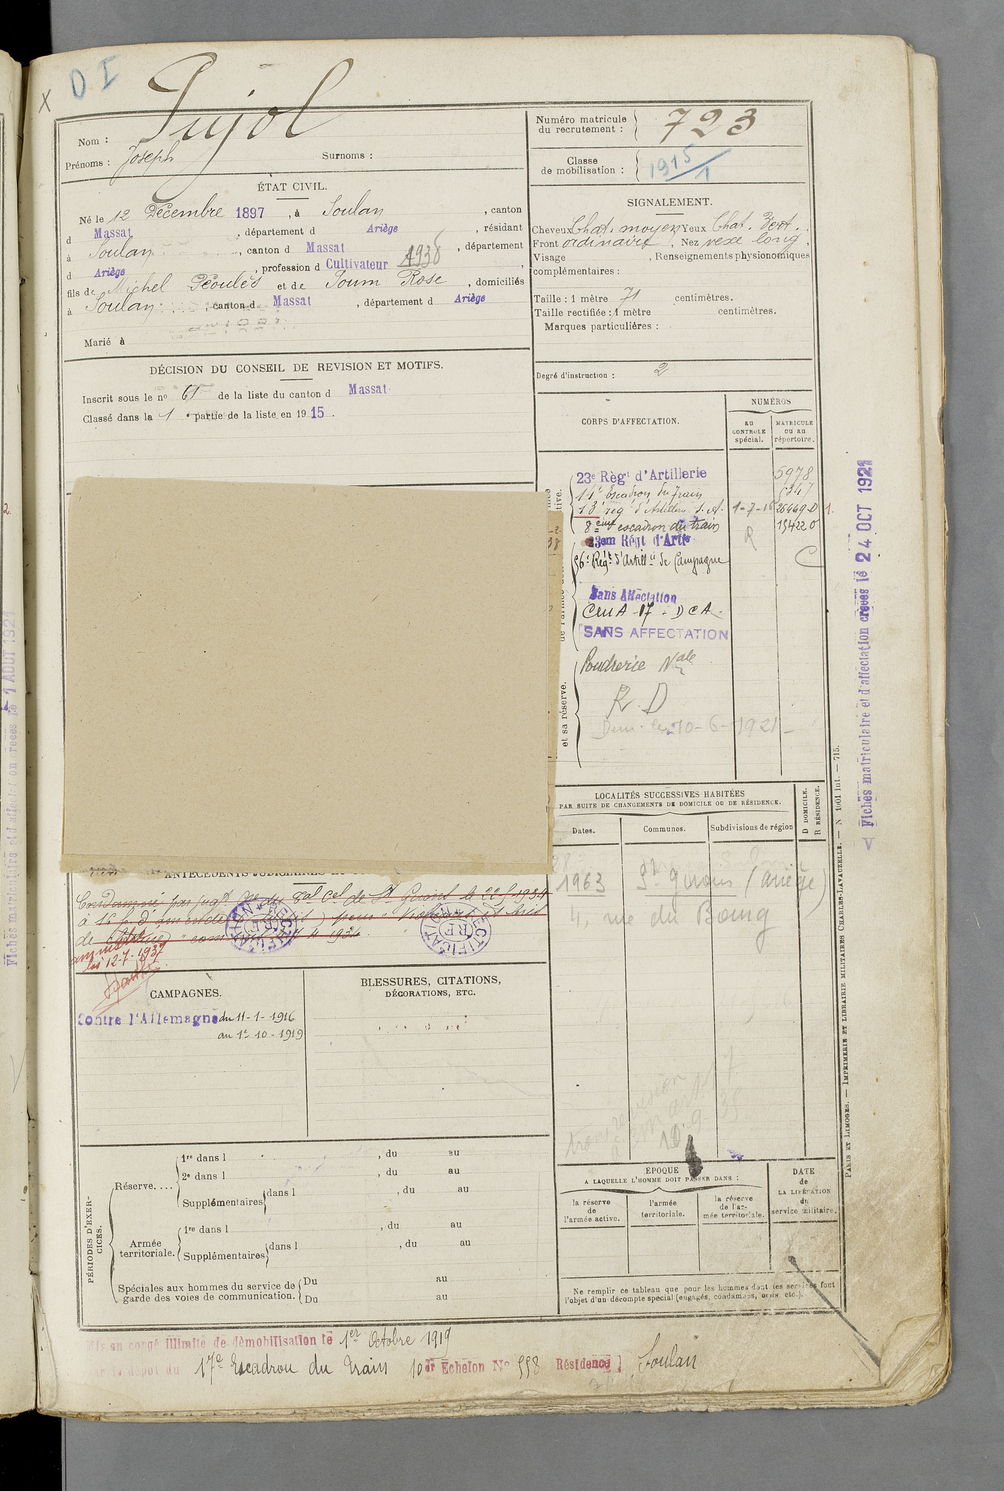 D I
X
Pujol
Nom :
Prénoms : Joseph Surnoms :
ÉTAT CIVIL.
Né le 12 Décembre 1897, à Soulan, canton
d Massat, département d Ariège, résidant
à Soulan, canton d Massat, département
d Ariège, profession d Cultivateur
fils de Michel Péoulès et de Soum Rose, domiciliés
à Soulan, canton d Massat, département d Ariège
Marié à
DÉCISION DU CONSEIL DE REVISION ET MOTIFS.
Inscrit sous le no de la liste du canton d Massat
Classé dans la 1 partie de la liste en 1915.
Numéro matricule
du recrutement : 723
Classe
de mobilisation : 1915/1
SIGNALEMENT.
Cheveux Chat. moyen Yeux Chat. Vert.
Front ordinaire, Nez vexe long,
Visage . Renseignements physionomiques
complémentaires :
Taille : 1 mètre 71 centimètres.
Taille rectifiée : 1 mètre centimètres.
Marques particulières :
Degré d'instruction : 2
CORPS D'AFFECTATION.
NUMÉROS
AU
CONTROLE
spécial.
MATRICULE
OU AU
répertoire.
23e Régt d'Artillerie 5978
escadron du train
18e rég. d'Artillerie 1-7-18
8eme escadron du train
23em Régt d'Artie
56e Régt d'Artillie de Campagne
Sans Affectation
CMA 17 - DCA.
SANS AFFECTATION
Poudrerie Nale
R. D
10-6-1921
et sa réserve.
LOCALITÉS SUCCESSIVES HABITÉES
PAR SUITE DE CHANGEMENTS DE DOMICILE OU DE RÉSIDENCE.
Dates.
Communes.
Subdivisions de région
D DOMICILE.
R RÉSIDENCE.
1963 St Girons (Ariège)
4, rue du Bourg
ANTÉCÉDENTS JUDICIAIRES ET
Condamné par jugt de St Girons le 22-5-1934
amnistié
loi 12-7-1937
RECTIFICATION
RECTIFICATION
CAMPAGNES.
Contre l'Allemagne du 11-1-1916
au 1er 10-1919
BLESSURES, CITATIONS,
DÉCORATIONS, ETC.
PÉRIODES D'EXER-
CICES.
Réserve....
1re dans l , du au
2e dans l , du au
Supplémentaires dans l , du au
Armée
territoriale.
1re dans l , du au
Supplémentaires dans l , du au
Spéciales aux hommes du service de
garde des voies de communication.
Du au
Du au
ÉPOQUE
A LAQUELLE L'HOMME DOIT PASSER DANS :
la réserve
de
l'armée active.
l'armée
territoriale.
la réserve
de l'ar-
mée territoriale.
DATE
de
LA LIBÉRATION
du
service militaire.
Ne remplir ce tableau que pour les hommes dont les services font
l'objet d'un décompte spécial (engagés, condamnés, omis, etc.).
Mis en congé illimité de démobilisation le 1er Octobre 1919
par le dépôt du 17e Escadron du Train 10e Echelon No 558 Résidence Soulan
Fiches matriculaire et d'affectation créées le 24 OCT 1921
PARIS ET LIMOGES. — IMPRIMERIE ET LIBRAIRIE MILITAIRES CHARLES-LAVAUZELLE. — N 1001 Int. — 715.
Fiches matriculaire et d'affectation créées le 1 AOUT 1921